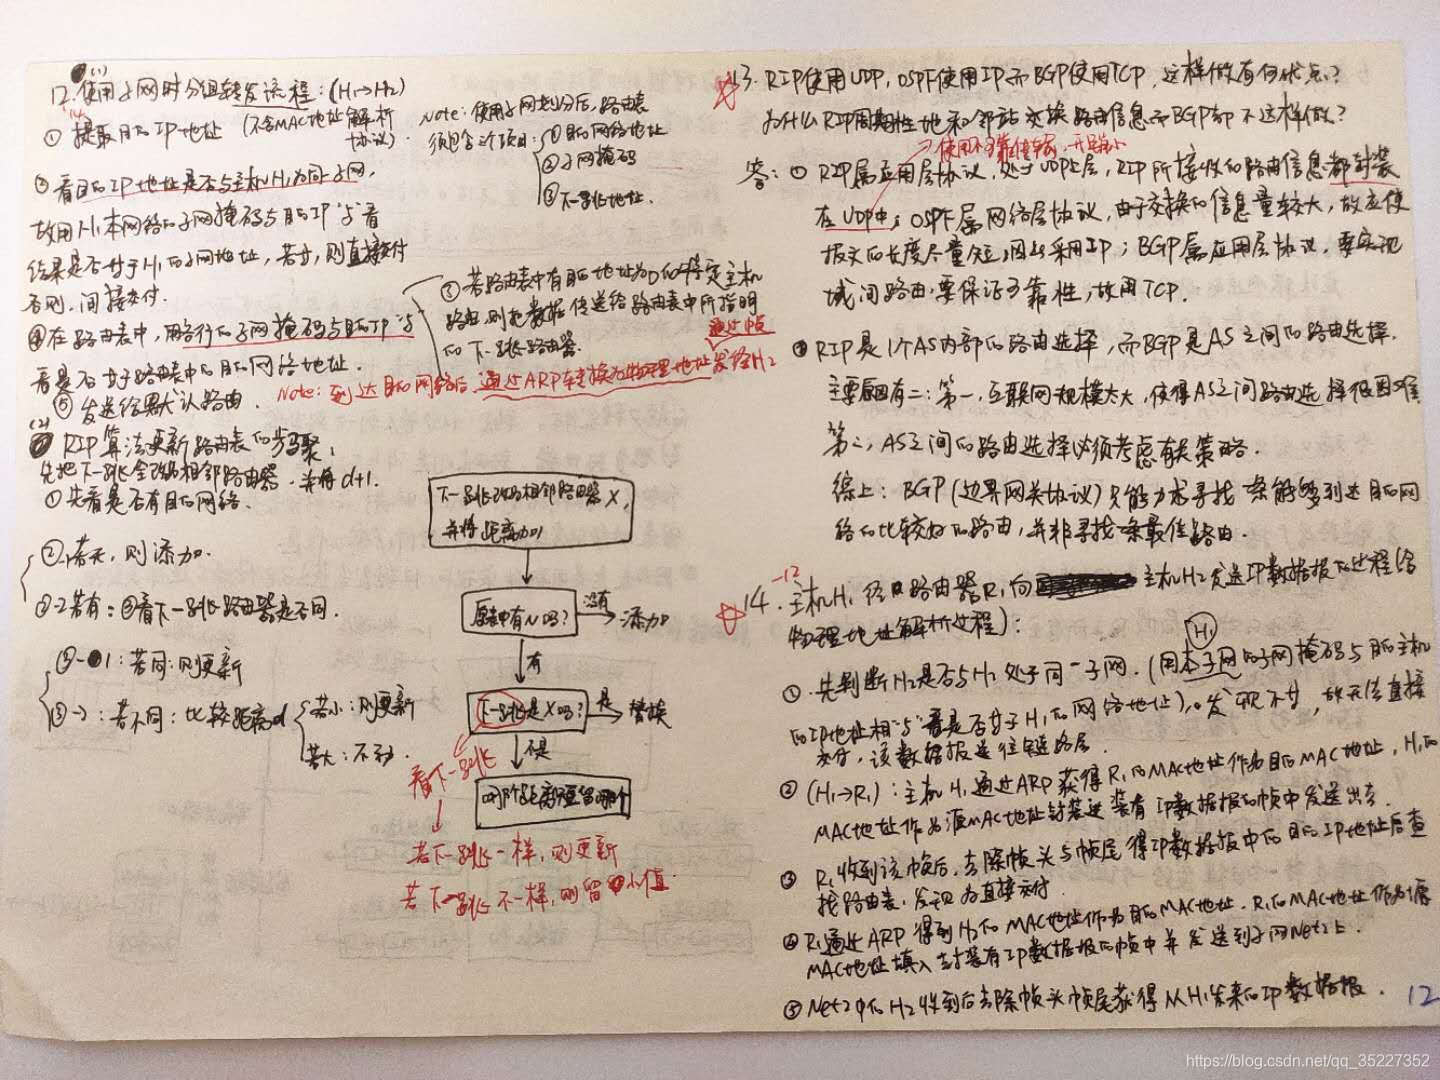 (1)
12. 使用子网时分组转发流程：(H₁→H₂)
① 提取目的IP地址 (不含MAC地址解析
协议)
Note：使用子网划分后，路由表
须包含三个项目：①目的网络地址
②子网掩码
③下一跳地址.
②看目的IP地址是否与主机H₁为同一子网,
故用H₁本网络的子网掩码与目的IP"与"看
结果是否等于H₁的子网地址，若等，则直接交付
否则，间接交付.
③若路由表中有目的地址为D的特定主机
路由,则把数据传送给路由表中所指明
的下一跳路由器.
④在路由表中，用各行的子网掩码与目的IP"与"
看是否等于路由表中的目的网络地址.
通过帧
Note：到达目的网络后,通过ARP转换为物理地址发给H2
⑤发送给默认路由.
(2)
RIP算法更新路由表的步骤：
先把下一跳全改为相邻路由器，并将d+1.
①先看是否有目的网络.
②-1若无，则添加.
②-2若有：③看下一跳路由器是否同.
③-1：若同：则更新
③-2：若不同：比较距离d
若小：则更新
若大：不动.
下一跳改为相邻路由器X,
并将距离加1
原表中有N吗?
没有
添加
有
下一跳是X吗?
是
替换
不是
哪个距离短留哪个
看下一跳
若下一跳一样，则更新
若下一跳不一样，则留小值.
13. RIP使用UDP，OSPF使用IP而BGP使用TCP，这样做有何优点？
为什么RIP周期性地和邻站交换路由信息而BGP却不这样做？
使用不可靠传输，开销小
答：① RIP属应用层协议，处于UDP上层，RIP所接收的路由信息都封装
在UDP中；OSPF属网络层协议，由于交换的信息量较大，故应使
报文的长度尽量短，因此采用IP；BGP属应用层协议，要实现
域间路由,要保证可靠性，故用TCP.
② RIP是1个AS内部的路由选择，而BGP是AS之间的路由选择.
主要原因有二：第一，互联网规模太大，使得AS之间路由选择很困难
第二，AS之间的路由选择必须考虑有关策略.
综上：BGP(边界网关协议)只能力求寻找一条能够到达目的网
络的比较好的路由，并非寻找一条最佳路由.
14. 主机H₁经由路由器R₁向主机H2发送IP数据报的过程(含
物理地址解析过程)：
H₁
① 先判断H₂是否与H₁处于同一子网. (用本子网的子网掩码与目的主机
的IP地址相"与"看是否等于H₁的网络地址)。发现不等，故无法直接
交付，该数据报送往链路层.
② (H₁→R₁)：主机H₁通过ARP获得R₁的MAC地址作为目的MAC地址，H₁的
MAC地址作为源MAC地址封装进装有IP数据报的帧中发送出去.
③ R₁收到该帧后，去除帧头与帧尾得IP数据报中的目的IP地址后查
找路由表，发现为直接交付.
④ R₁通过ARP得到H₂的MAC地址作为目的MAC地址，R₁的MAC地址作为源
MAC地址填入封装有IP数据报的帧中并发送到子网Net2上.
⑤ Net2中的H₂收到后去除帧头帧尾获得从H₁发来的IP数据报.
12
https://blog.csdn.net/qq_35227352